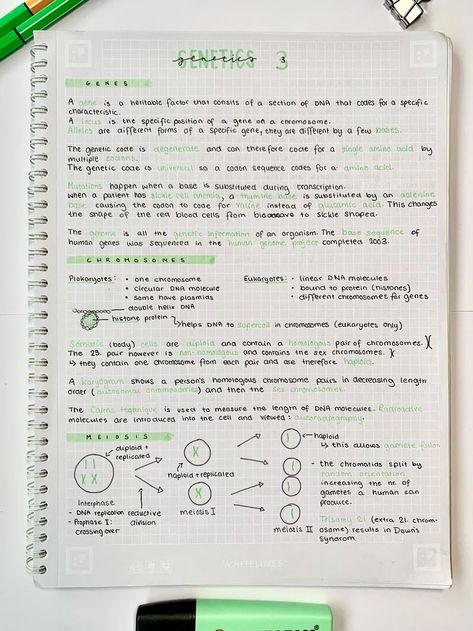 GENETICS 3
genetics 3
GENES
A gene is a heritable factor that consits of a section of DNA that codes for a specific
characteristic.
A locus is the specific position of a gene on a chromosome.
Alleles are different forms of a specific gene, they are different by a few bases.
The genetic code is degenerate and can therefore code for a single amino acid by
multiple codons.
The genetic code is universal so a codon sequence codes for a amino acid.
Mutations happen when a base is substituted during transcription.
when a patient has sickle cell anemia, a thymine base is substituted by an adenine
base causing the codon to code for valine instead of glutamic acid. This changes
the shape of the red blood cells from biconcave to sickle shaped.
The genome is all the genetic information of an organism. The base sequence of
human genes was sequenced in the human genome project completed 2003.
CHROMOSOMES
Prokaryotes: • one chromosome
• circular DNA molecule
• some have plasmids
Eukaryotes: • linear DNA molecules
• bound to protein (histones)
• different chromosomes for genes
double helix DNA
histone protein
helps DNA to supercoil in chromosomes (eukaryotes only)
Somatic (body) cells are diploid and contain a homologous pair of chromosomes.
The 23. pair however is non-homologous and contains the sex chromosomes.
↳ they contain one chromosome from each pair and are therefore haploid.
A karyogram shows a person's homologous chromosome pairs in decreasing length
order (autosomal chromosomes) and then the sex chromosomes.
The Cairns technique is used to measure the length of DNA molecules. Radioactive
molecules are introduced into the cell and viewed: autoradiography.
MEIOSIS
diploid +
replicated
Interphase
- DNA replication
- Prophase I:
crossing over
reductive
division
haploid + replicated
meiosis I
meiosis II
haploid
↳ this allows gamete fusion
- the chromatids split by
random orientation
increasing the nr. of
gametes a human can
produce.
Trisomy 21 (extra 21. chrom-
osome) results in Down's
syndrom
WHITELINES